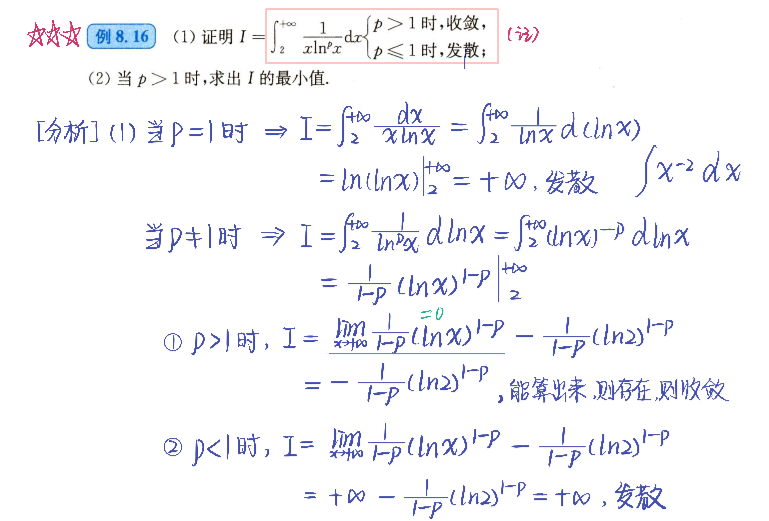 ☆☆☆ 例 8.16 (1) 证明 I = ∫₂^{+∞} 1/(x ln^p x) dx { p > 1 时,收敛, p ≤ 1 时,发散; (注)
(2) 当 p > 1 时,求出 I 的最小值.
[分析] (1) 当 p = 1 时 ⇒ I = ∫₂^{+∞} dx/(x ln x) = ∫₂^{+∞} 1/(ln x) d(ln x)
= ln(ln x) |₂^{+∞} = +∞, 发散 ∫ x^{-2} dx
当 p ≠ 1 时 ⇒ I = ∫₂^{+∞} 1/(ln^p x) d ln x = ∫₂^{+∞} (ln x)^{-p} d ln x
= 1/(1-p) (ln x)^{1-p} |₂^{+∞}
=0
① p>1 时, I = lim_{x→+∞} 1/(1-p) (ln x)^{1-p} - 1/(1-p) (ln 2)^{1-p}
= - 1/(1-p) (ln 2)^{1-p}, 能算出来,则存在,则收敛
② p<1 时, I = lim_{x→+∞} 1/(1-p) (ln x)^{1-p} - 1/(1-p) (ln 2)^{1-p}
= +∞ - 1/(1-p) (ln 2)^{1-p} = +∞, 发散